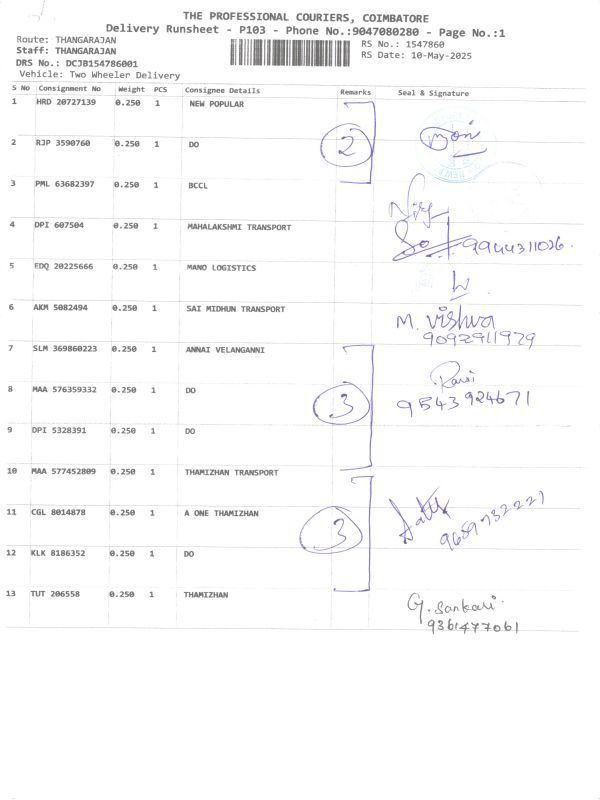 THE PROFESSIONAL COURIERS, COIMBATORE
Delivery Runsheet - P103 - Phone No.:9047080280 - Page No.:1
Route: THANGARAJAN
RS No.: 1547860
Staff: THANGARAJAN
RS Date: 10-May-2025
DRS No.: DCJB154786001
Vehicle: Two Wheeler Delivery
S No Consignment No Weight PCS Consignee Details Remarks Seal & Signature
1 HRD 20727139 0.250 1 NEW POPULAR
2 RJP 3590760 0.250 1 DO 2
3 PML 63682397 0.250 1 BCCL
4 DPI 607504 0.250 1 MAHALAKSHMI TRANSPORT
9944311026.
5 EDQ 20225666 0.250 1 MANO LOGISTICS
6 AKM 5082494 0.250 1 SAI MIDHUN TRANSPORT
M. Vishva
9092911979
7 SLM 369860223 0.250 1 ANNAI VELANGANNI
Ravi
8 MAA 576359332 0.250 1 DO 3 9543924671
9 DPI 5328391 0.250 1 DO
10 MAA 577452809 0.250 1 THAMIZHAN TRANSPORT
11 CGL 8014878 0.250 1 A ONE THAMIZHAN 3 9659732221
12 KLK 8186352 0.250 1 DO
13 TUT 206558 0.250 1 THAMIZHAN
G. Sankari.
9361477061